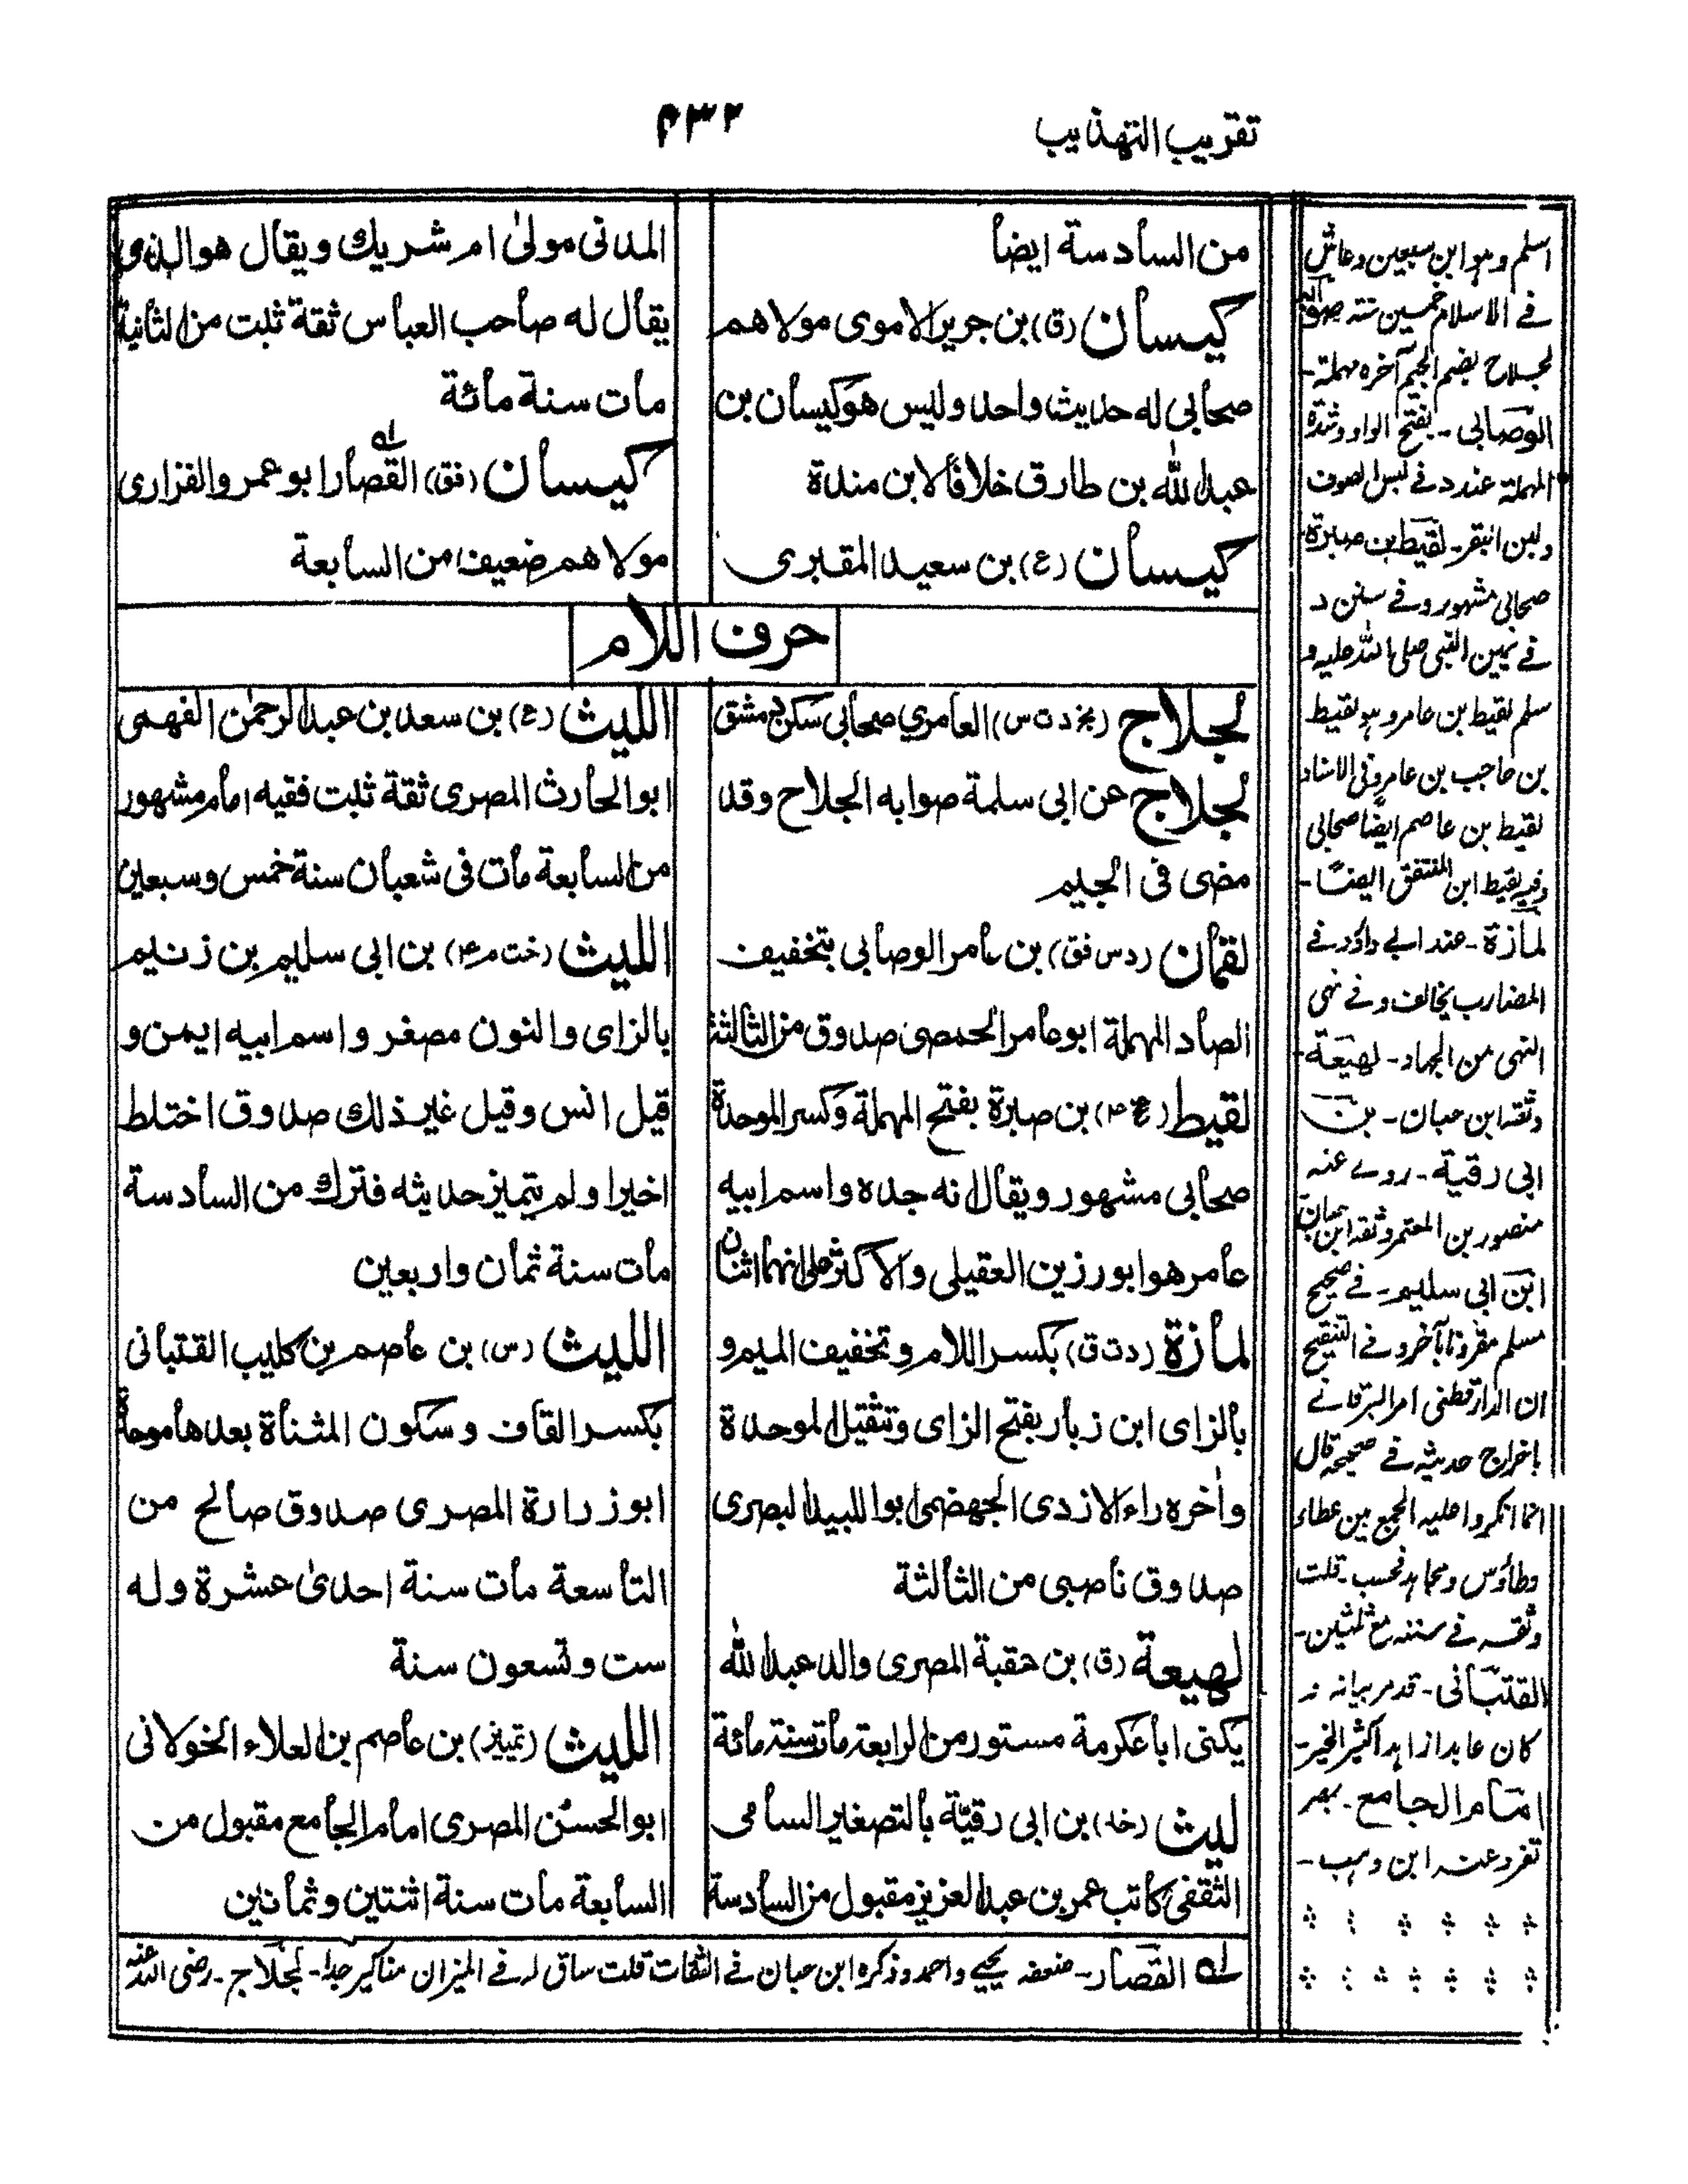 تقريب التهذيب
٤٣٢
من السادسة ايضا
كيسان (ق) بن جرير الاموى مولاهم
صحابى له حديث واحد وليس هو كيسان بن
عبد الله بن طارق خلافا لابن مندة
كيسان (ع) بن سعيد المقبرى
المدنى مولىٰ ام شريك ويقال هو الذى
يقال له صاحب العباس ثقة ثبت من الثانية
مات سنة مائة
كيسان (فق) القصار ابو عمر والفزارى
مولاهم ضعيف من السابعة
حرف اللام
لجلاج (بخ د ت س) العامري صحابى سكن دمشق
لجلاج عن ابى سلمة صوابه الجلاح وقد
مضى فى الجيم
لقمان (د س فق) بن عامر الوصابى بتخفيف
الصاد المهملة ابو عامر الحمصى صدوق من الثالثة
لقيط (بخ ٤) بن صبرة بفتح المهملة وكسر الموحدة
صحابى مشهور ويقال انه جده واسم ابيه
عامر هو ابو رزين العقيلى والاكثر على انهما اثنان
لمازة (د ت ق) بكسر اللام وتخفيف الميم و
بالزاى ابن زبار بفتح الزاى وتثقيل الموحدة
وأخره راء الازدى الجهضمى ابو اللبيد البصرى
صدوق ناصبى من الثالثة
لهيعة (ق) بن عقبة المصرى والد عبد الله
يكنى ابا عكرمة مستور من الرابعة مات سنة مائة
ليث (خد) بن ابى رقيّة بالتصغير الشامى
الثقفى كاتب عمر بن عبد العزيز مقبول من السادسة
الليث (ع) بن سعد بن عبد الرحمٰن الفهمى
ابو الحارث المصرى ثقة ثبت فقيه امام مشهور
من السابعة مات فى شعبان سنة خمس وسبعين
الليث (خت م ٤) بن ابى سليم بن زنيم
بالزاى والنون مصغر واسم ابيه ايمن و
قيل انس وقيل غير ذلك صدوق اختلط
اخيرا ولم يتميز حديثه فترك من السادسة
مات سنة ثمان واربعين
الليث (س) بن عاصم بن كليب القتبانى
بكسر القاف وسكون المثناة بعدها موحدة
ابو زرارة المصرى صدوق صالح من
التاسعة مات سنة احدىٰ عشرة وله
ست وتسعون سنة
الليث (تمييز) بن عاصم بن العلاء الخولانى
ابو الحسن المصرى امام الجامع مقبول من
السابعة مات سنة اثنتين وثمانين
له القصار - ضعفه يحيي واحمد وذكره ابن حبان فے الثقات قلت ساق له فے الميزان مناكير جدا - لجلاج - رضى الله عنه
اسلم وهو ابن سبعين وعاش
فے الاسلام خمسين سنة
لجلاح بضم الجيم آخره مهملة -
الوصابى - بفتح الواو وشدة
المهملة عند د فے لبس الصوف
ولبن البقر - لقيط بن صبرة
صحابى مشهور وفے سنن د
فے يمين النبى صلى الله عليه و
سلم لقيط بن عامر وهو لقيط
بن حاجب بن عامر وفى الاسناد
لقيط بن عاصم ايضا صحابى
وفيه لقيط ابن المنتفق ايضًا -
لمازة - عند ابے داؤد فے
المضارب يخالف وفے نهى
النهى من الجهاد - لهيعة -
وثقه ابن حبان - بن
ابى رقية - روے عنه
منصور بن المعتمر وثقه ابن حبان
ابن ابى سليم - فے صحيح
مسلم مقرونا بآخر وفے التنقيح
ان الدارقطنى امر البرقانے
باخراج حديثه فے صحيحه قال
انما انكروا عليه الجمع بين عطاء
وطاؤس ومجاهد فحسب - قلت
وثقه فے سننه مع ثلثين -
القتبانى - قد مر بيانه
كان عابدا زاهدا كثير الخير -
امام الجامع - بمصر
تفرد عنه ابن وهب -